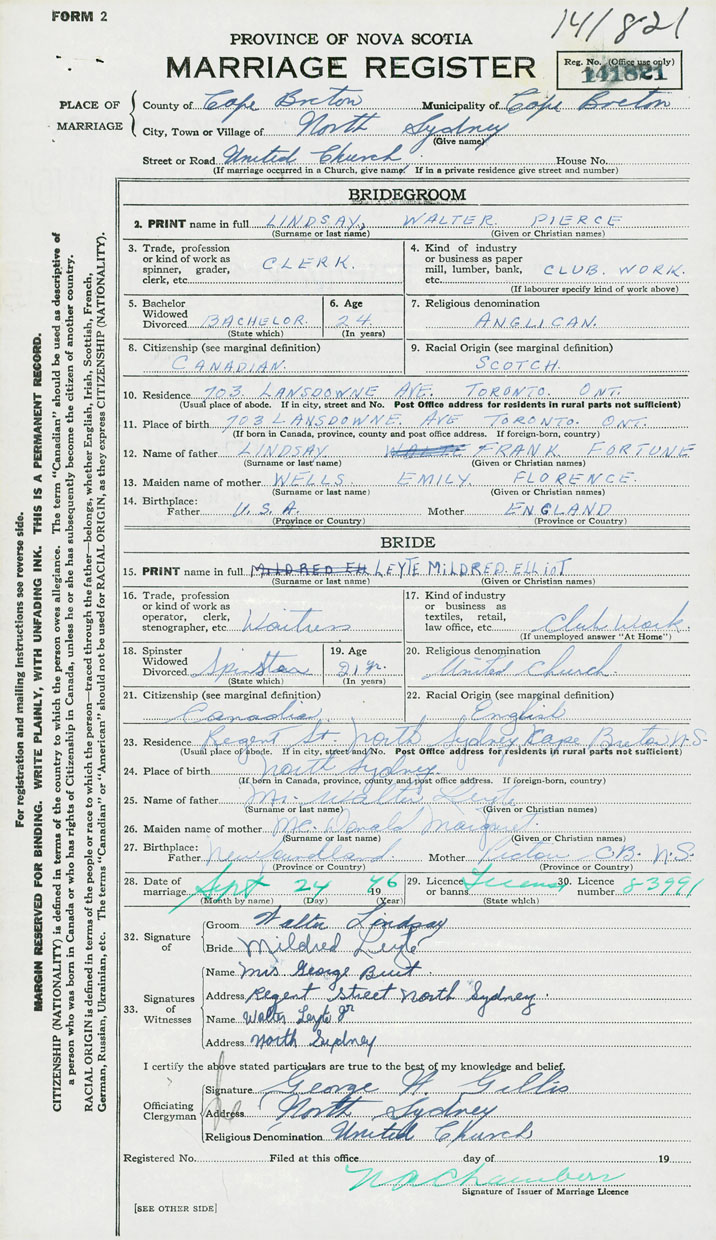 FORM 2
141821
PROVINCE OF NOVA SCOTIA
MARRIAGE REGISTER
Reg. No. (Office use only)
141821
PLACE OF MARRIAGE
County of Cape Breton Municipality of Cape Breton
City, Town or Village of North Sydney
(Give name)
Street or Road United Church House No.
(If marriage occurred in a Church, give name. If in a private residence give street and number)
BRIDEGROOM
2. PRINT name in full LINDSAY, WALTER PIERCE
(Surname or last name) (Given or Christian names)
3. Trade, profession or kind of work as spinner, grader, clerk, etc. CLERK.
4. Kind of industry or business as paper mill, lumber, bank, etc. CLUB. WORK.
(If labourer specify kind of work above)
5. Bachelor Widowed Divorced BACHELOR.
(State which)
6. Age 24
(In years)
7. Religious denomination ANGLICAN.
8. Citizenship (see marginal definition) CANADIAN.
9. Racial Origin (see marginal definition) SCOTCH.
10. Residence 703 LANSDOWNE AVE. TORONTO. ONT.
(Usual place of abode. If in city, street and No. Post Office address for residents in rural parts not sufficient)
11. Place of birth 703 LANSDOWNE. AVE TORONTO. ONT.
(If born in Canada, province, county and post office address. If foreign-born, country)
12. Name of father LINDSAY. FRANK FORTUNE
(Surname or last name) (Given or Christian names)
13. Maiden name of mother WELLS. EMILY. FLORENCE.
(Surname or last name) (Given or Christian names)
14. Birthplace: Father U.S.A. Mother ENGLAND
(Province or Country) (Province or Country)
BRIDE
15. PRINT name in full MILDRED EH LEYTE MILDRED. ELLIOT
(Surname or last name) (Given or Christian names)
16. Trade, profession or kind of work as operator, clerk, stenographer, etc. Waitress
17. Kind of industry or business as textiles, retail, law office, etc. Club Work
(If unemployed answer "At Home")
18. Spinster Widowed Divorced Spinster
(State which)
19. Age 21 yr.
(In years)
20. Religious denomination United Church
21. Citizenship (see marginal definition) Canadia
22. Racial Origin (see marginal definition) English
23. Residence Regent St. North Sydney Cape Breton N.S.
(Usual place of abode. If in city, street and No. Post Office address for residents in rural parts not sufficient)
24. Place of birth North Sydney.
(If born in Canada, province, county and post office address. If foreign-born, country)
25. Name of father Mr. Walter Leyte
(Surname or last name) (Given or Christian names)
26. Maiden name of mother Mc. Donald Margret.
(Surname or last name) (Given or Christian names)
27. Birthplace: Father Newfoundland. Mother C.B. N.S.
(Province or Country) (Province or Country)
28. Date of marriage Sept 24 1946
(Month by name) (Day) (Year)
29. Licence or banns License
(State which)
30. Licence number 83991
32. Signature of
Groom Walter Lindsay
Bride Mildred Leyte
33. Signatures of Witnesses
Name Mrs George Butt.
Address Regent Street North Sydney.
Name Walter Leyte Jr
Address North Sydney
I certify the above stated particulars are true to the best of my knowledge and belief.
Officiating Clergyman
Signature George W Gillis
Address North Sydney
Religious Denomination United Church
Registered No. Filed at this office day of 19
Chambers
Signature of Issuer of Marriage Licence
[SEE OTHER SIDE]
For registration and mailing instructions see reverse side.
MARGIN RESERVED FOR BINDING. WRITE PLAINLY, WITH UNFADING INK. THIS IS A PERMANENT RECORD.
CITIZENSHIP (NATIONALITY) is defined in terms of the country to which the person owes allegiance. The term "Canadian" should be used as descriptive of
a person who was born in Canada or who has rights of Citizenship in Canada, unless he or she has subsequently become the citizen of another country.
RACIAL ORIGIN is defined in terms of the people or race to which the person—traced through the father—belongs, whether English, Irish, Scottish, French,
German, Russian, Ukrainian, etc. The terms "Canadian" or "American" should not be used for RACIAL ORIGIN, as they express CITIZENSHIP (NATIONALITY).